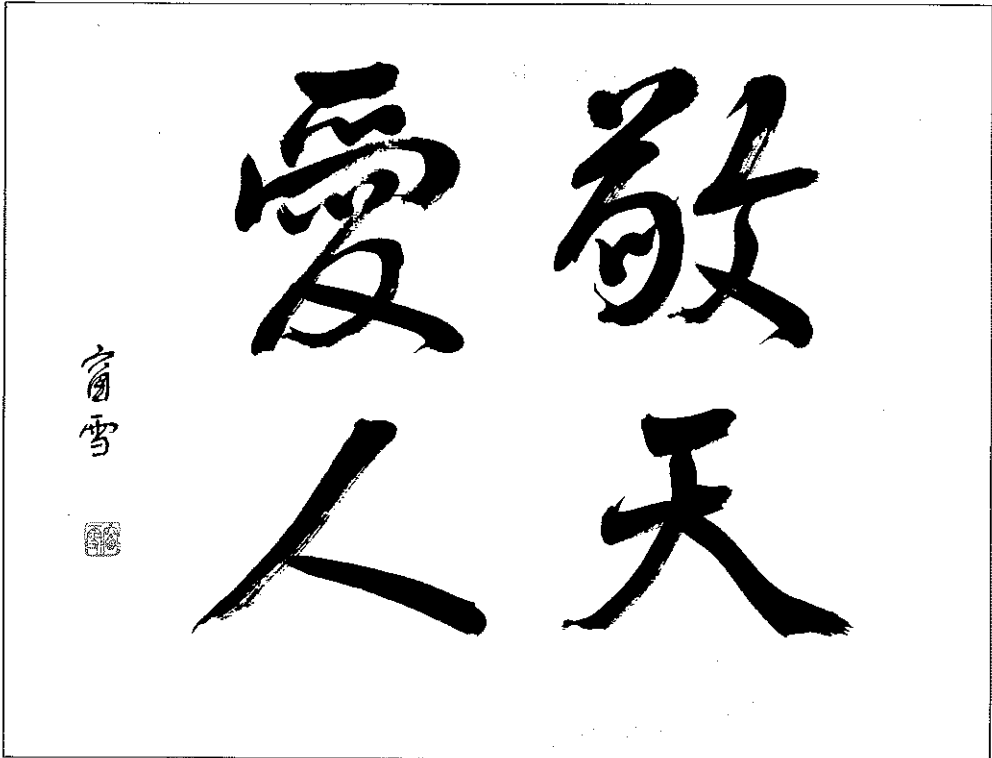 敬天
愛人
窗雪